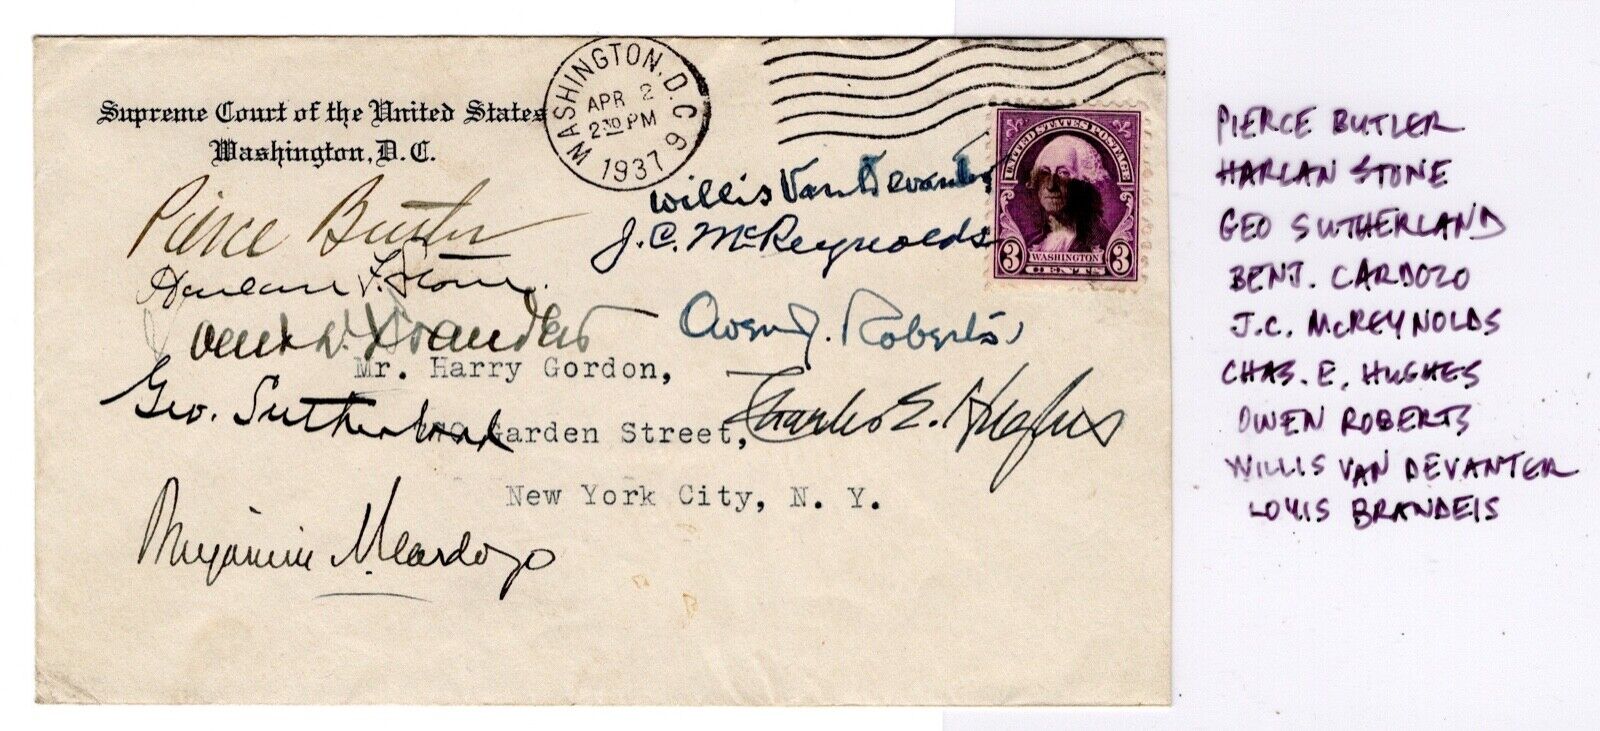 Supreme Court of the United States
Washington, D.C.
WASHINGTON, D.C. 9
APR 2
2 30 PM
1937
UNITED STATES POSTAGE
3 WASHINGTON 3
CENTS
Willis Van Devanter
J. C. McReynolds
Pierce Butler
Harlan F. Stone.
Louis D. Brandeis
Owen J. Roberts
Mr. Harry Gordon,
Geo. Sutherland
Garden Street,
Charles E. Hughes
New York City, N. Y.
Benjamin N. Cardozo
PIERCE BUTLER
HARLAN STONE
GEO SUTHERLAND
BENJ. CARDOZO
J.C. McREYNOLDS
CHAS. E. HUGHES
OWEN ROBERTS
WILLIS VAN DEVANTER
LOUIS BRANDEIS